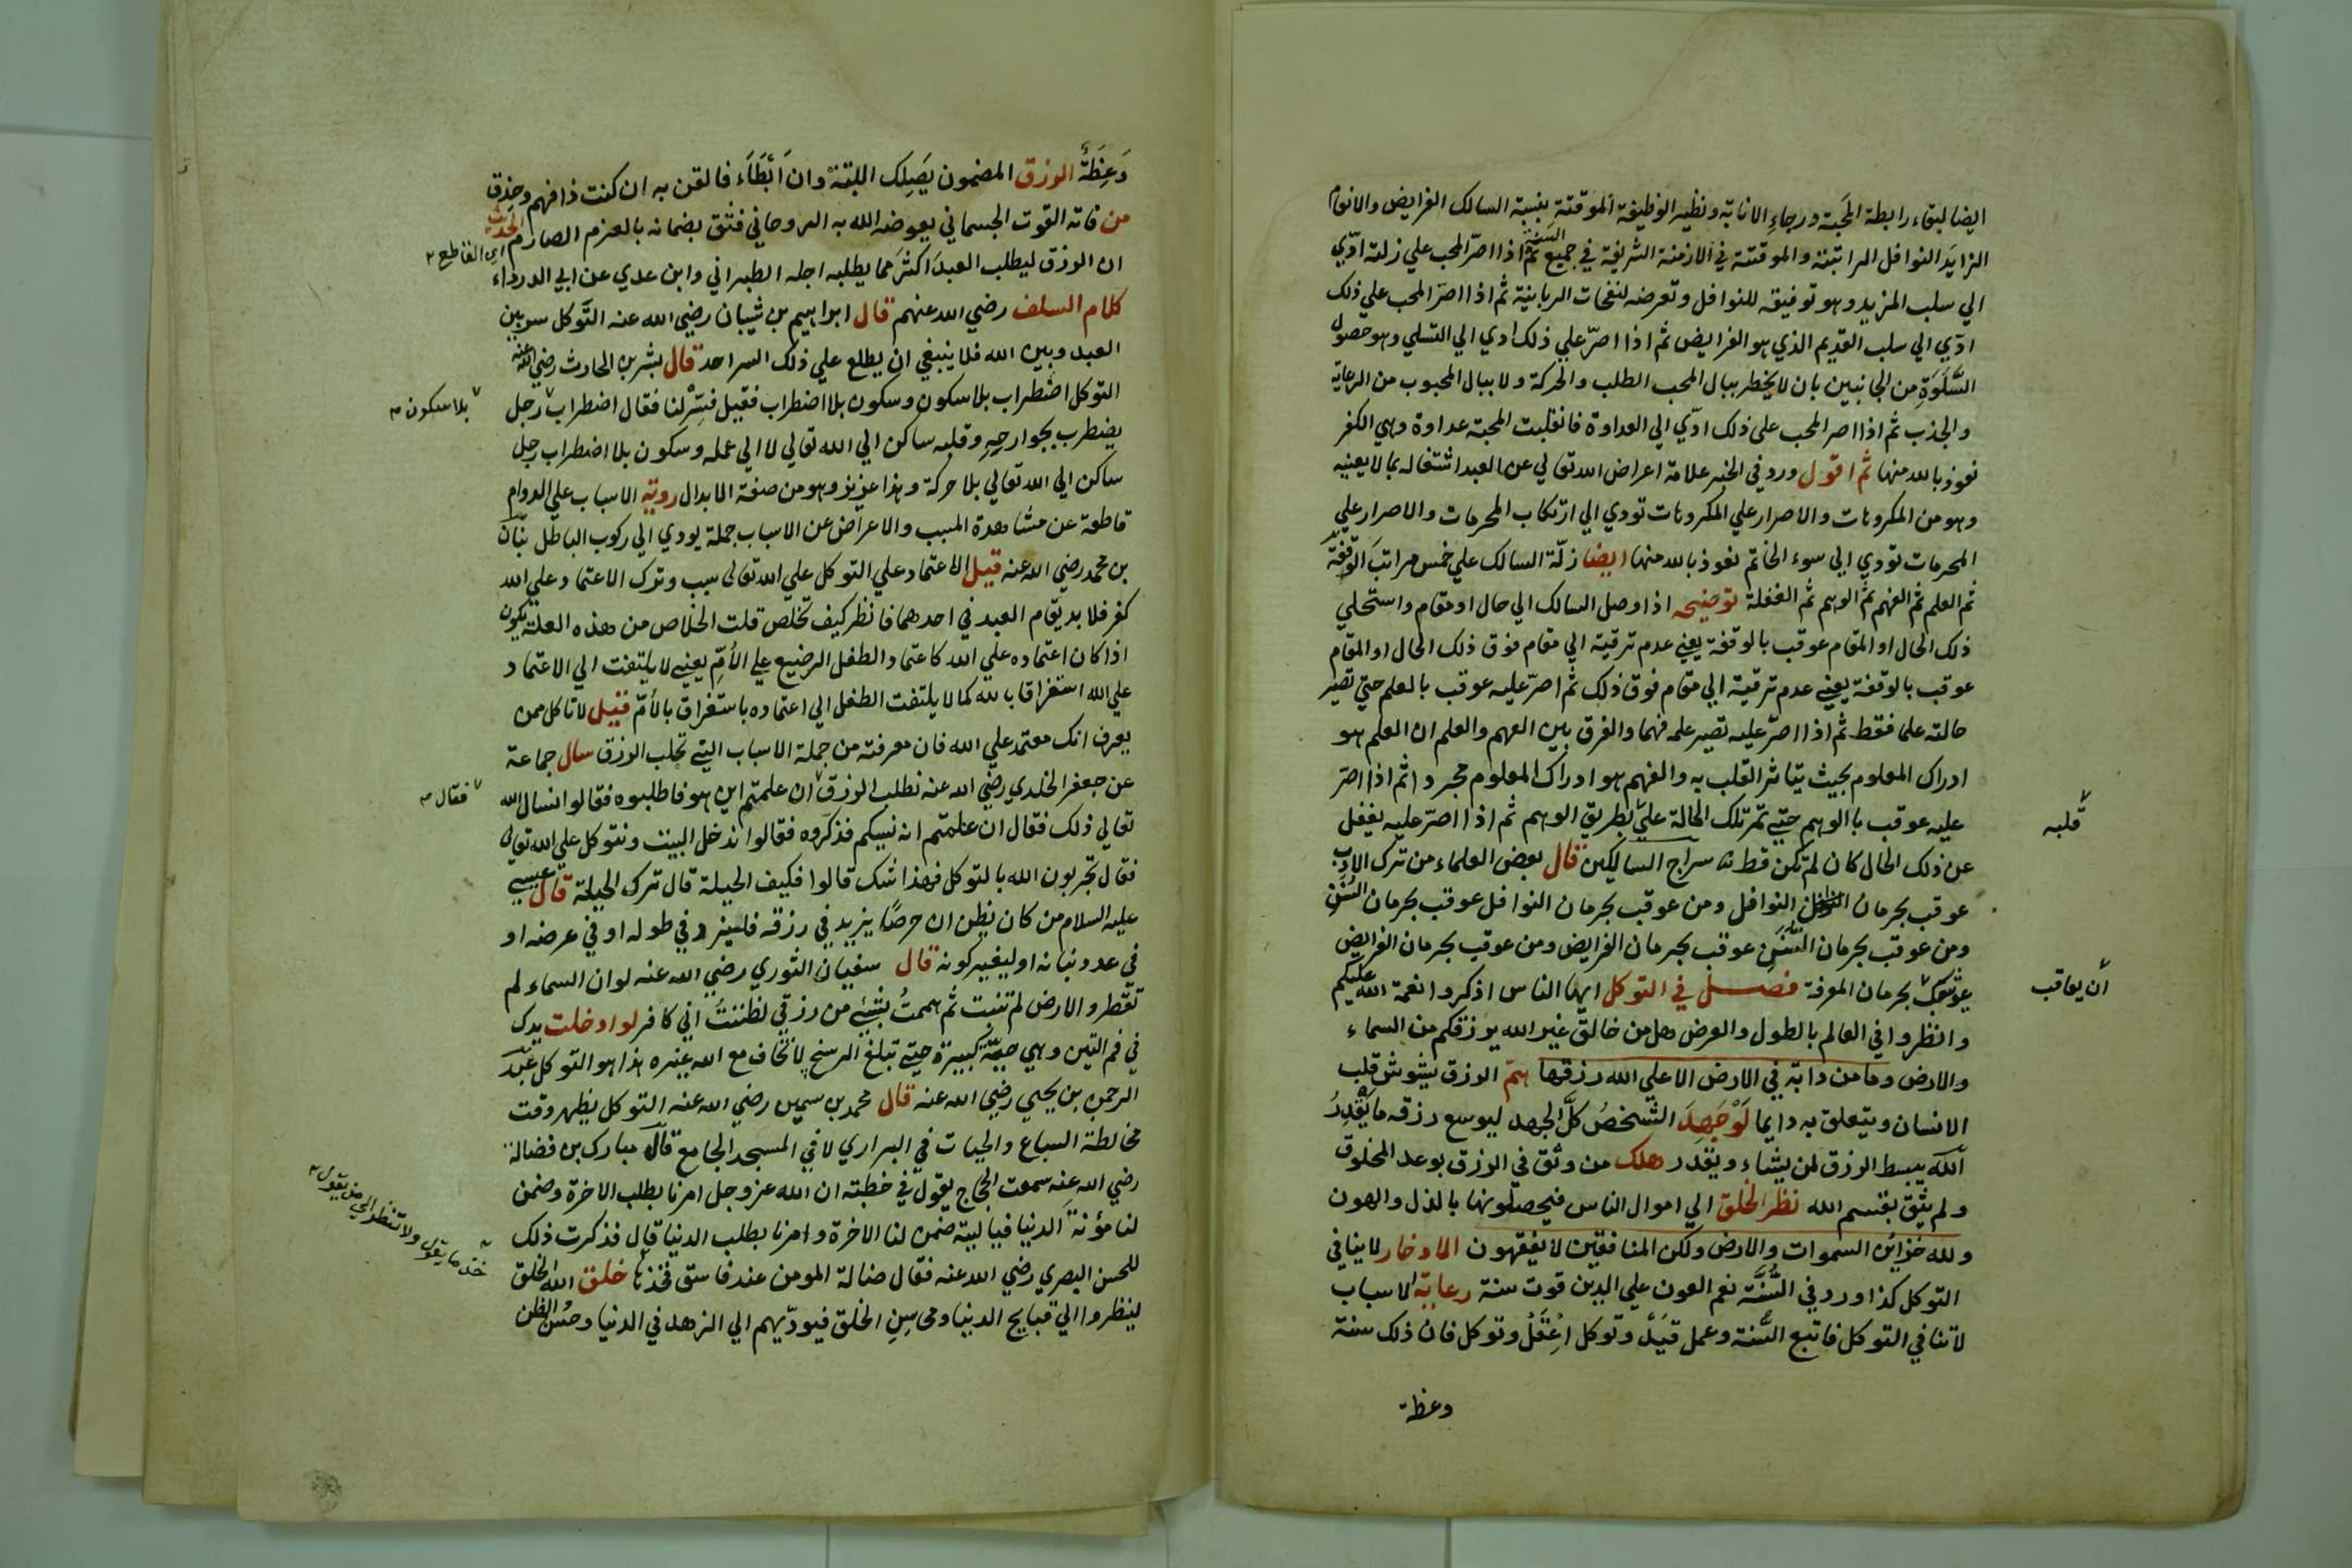 ايضا لبقاء رابطة المحبة ورجاء الانابة ونظير الوظيفة الموقتة بنسبة السالك الفرايض والانوام
الزايد النوافل الراتبة والموقتة في الازمنة الشريفة في جميع السنة ثم اذا اصر المحب علي زلته ادّي
الي سلب المزيد وهو توفيقه للنوافل وتعرضه لنفحات الربانية ثم اذا اصر المحب علي ذلك
ادّي الي سلب القديم الذي هو الفرايض ثم اذا اصرّ علي ذلك ادي الي التسلي وهو حصول
السَّلْوَةِ من الجانبين بان لا يخطر ببال المحب الطلب والحركة ولا ببال المحبوب من الرعاية
والجذب ثم اذا اصر المحب علي ذلك ادّي الي العداوة فانقلبت المحبة عداوة وهي الكفر
نعوذ بالله منها ثم اقول ورد في الخبر علامة اعراض الله تعالي عن العبد اشتغاله بما لا يعنيه
وهو من المكروهات والاصرار علي المكروهات تودي الي ارتكاب المحرمات والاصرار علي
المحرمات تودي الي سوء الخاتم نعوذ بالله منها ايضا زلّة السالك علي خمس مراتب الوقفة
ثم العلم ثم الفهم ثم الوهم ثم الغفلة توضيحه اذا وصل السالك الي حال او مقام واستحلي
ذلك الحال او المقام عوقب بالوقفة يعني عدم ترقية الي مقام فوق ذلك الحال او المقام
عوقب بالوقفة يعني عدم ترقية الي مقام فوق ذلك ثم اصرّ عليه عوقب بالعلم حتي تصير
حالته علما فقط ثم اذا اصرّ عليه تصير علمه فهما والفرق بين الفهم والعلم ان العلم هو
ادراك المعلوم بحيث يتاثر القلب به والفهم هو ادراك المعلوم مجردا ثم اذا اصرّ
عليه عوقب بالوهم حتي تمر تلك الحالة علي بطريق الوهم ثم اذا اصرّ عليه يغفل
قلبه
عن ذلك الحال كان لم تكن قط سراج السالكين قال بعض العلماء من ترك الادب
عوقب بحرمان النوافل ومن عوقب بحرمان النوافل عوقب بحرمان السُّنَنِ
ومن عوقب بحرمان السُّنَنِ عوقب بحرمان الفرايض ومن عوقب بحرمان الفرايض
يوشك بحرمان المعرفة فصل في التوكل ايها الناس اذكروا نعمة الله عليكم
أن يعاقب
وانظروا في العالم بالطول والعرض هل من خالق غير الله يرزقكم من السماء
والارض وما من دابة في الارض الا علي الله رزقها همّ الرزق يشوش قلب
الانسان ويتعلق به دايما لَوْ جَهِدَ الشخصُ كلَّ الجهد ليوسع رزقه ما يَقْدِرُ
الله يبسط الرزق لمن يشاء ويقدر هلك من وثق في الرزق بوعد المخلوق
ولم يثق بقسم الله نظر الخلق الي اموال الناس فيحصلونها بالذل والهون
ولله خزائن السموات والارض ولكن المنافقين لا يفقهون الادخار لا ينافي
التوكل كذا ورد في السُّنَّة نعم العون علي الدين قوت سنة رعاية الاسباب
لا تنافي التوكل فاتبع السُّنة وعمل قيِّد وتوكل اعْقَلْ وتوكل فان ذلك سنة
وعظة
وَعِظَةٌ الرزق المضمون يَصِلك البتة وان أَبْطَأَ فالقن به ان كنت ذا فهم وحِذق
من فاته القوت الجسماني يعوضه الله به الروحاني فثق بضمانه بالعزم الصارم الحديث
اي القاطع
ان الرزق ليطلب العبد اكثر مما يطلبه اجله الطبراني وابن عدي عن ابي الدرداء
كلام السلف رضي الله عنهم قال ابراهيم بن شيبان رضي الله عنه التوكل سر بين
العبد وبين الله فلا ينبغي ان يطلع علي ذلك السر احد قال بشر بن الحارث رضي الله عنه
التوكل اضطراب بلا سكون وسكون بلا اضطراب فقيل فسّر لنا فقال اضطراب رجل
بلا سكون
يضطرب بجوارحِهِ وقلبه ساكن الي الله تعالي لا الي عمله وسكون بلا اضطراب رجل
ساكن الي الله تعالي بلا حركة وهذا عزيز وهو من صفة الابدال روية الاسباب علي الدوام
قاطعة عن مشاهدة المسبب والاعراض عن الاسباب جملة يودي الي ركوب الباطل بنان
بن محمد رضي الله عنه قيل الاعتماد علي التوكل علي الله تعالي سبب وترك الاعتماد علي الله
كفر فلا بد يقام العبد في احدهما فانظر كيف تخلص قلت الخلاص من هذه العلة يكون
اذا كان اعتماده علي الله كاعتماد الطفل الرضيع علي الأمّ يعني لا يلتفت الي الاعتماد
علي الله استغراقا بالله كما لا يلتفت الطفل الي اعتماده باستغراق بالأمّ قيل لا تاكل ممن
يعرف انك معتمد علي الله فان معرفته من جملة الاسباب التي تجلب الرزق سال جماعة
عن جعفر الخلدي رضي الله عنه نطلب الرزق ان علمتم اين هو فاطلبوه فقالوا نسال الله
فقال
تعالي ذلك فقال ان علمتم انه نسيكم فذكّروه فقالوا ندخل البيت ونتوكل علي الله تعالي
فقال تجربون الله بالتوكل فهذا شك قالوا فكيف الحيلة قال ترك الحيلة قال عيسي
عليه السلام من كان يظن ان حرصًا يزيد في رزقه فليزد في طوله او في عرضه او
في عدد بنانه او ليغير كونه قال سفيان الثوري رضي الله عنه لو ان السماء لم
تقطر والارض لم تنبت ثم هممتُ بشيء من رزقي لظننتُ اني كافر لو ادخلت يدك
في فم التنين وهي حيّة كبيرة حتي تبلغ الرسخ لا تخاف مع الله غيره هذا هو التوكل عبد
الرحمن بن يحيي رضي الله عنه قال محمد بن سيرين رضي الله عنه التوكل يظهر وقت
مخالطة السباع والحيات في البراري لا في المسجد الجامع قال مبارك بن فضالة
رضي الله عنه سمعت الحجاج يقول في خطبته ان الله عز وجل امرنا بطلب الاخرة وضمن
لنا مؤنة الدنيا فياليته ضمن لنا الاخرة وامرنا بطلب الدنيا قال فذكرت ذلك
للحسن البصري رضي الله عنه فقال ضالة المومن عند فاسق فخذها خلق الله الخلق
خذ ما يقول ولا تنظر الي من يقول
لينظروا الي قبايح الدنيا ومحاسِنِ الخلق فيودّيهم الي الزهد في الدنيا وحُسْن الظن